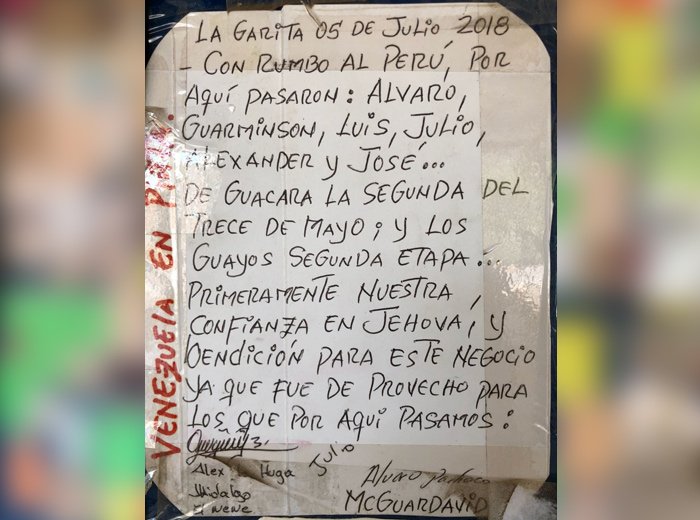 LA GARITA 05 DE JULIO 2018
- CON RUMBO AL PERÚ, POR
AQUÍ PASARON: ALVARO,
GUARMINSON, LUIS, JULIO,
ALEXANDER Y JOSÉ...
DE GUACARA LA SEGUNDA DEL
TRECE DE MAYO; Y LOS
GUAYOS SEGUNDA ETAPA...
PRIMERAMENTE NUESTRA,
CONFIANZA EN JEHOVA, Y
BENDICIÓN PARA ESTE NEGOCIO
YA QUE FUE DE PROVECHO PARA
LOS QUE POR AQUÍ PASAMOS:
Alex Huga Julio
Jhidalgo
El nene
Alvaro Pacheco
MCGUARDAVID
VENEZUELA EN